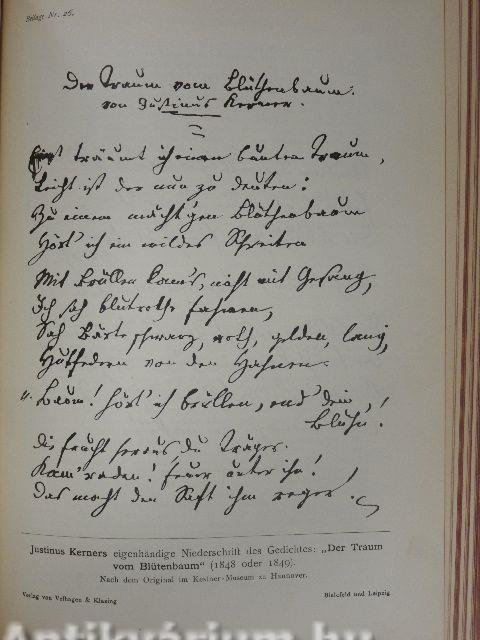 Beilage Nr. 26.
Der Traum vom Blüthenbaum.
von Justinus Kerner.
Einst träumt ich einen bunten Traum,
Leicht ist der nun zu deuten:
Zu einem mächt'gen Blüthenbaum
Hört' ich ein wildes Schreiten
Mit Brüllen kam's, nicht mit Gesang,
Ich sah blutrothe Fahnen,
Sah Bärte schwarz, roth, golden, lang,
Hutfedern von den Hahnen.
„Baum! hört' ich brüllen, end' dein
Blühn!
Die Frucht heraus du Träger.
Kam'raden! Feuer unter ihn!
Das macht den Saft ihm reger!
Justinus Kerners eigenhändige Niederschrift des Gedichtes: „Der Traum
vom Blütenbaum“ (1848 oder 1849).
Nach dem Original im Kestner-Museum zu Hannover.
Verlag von Velhagen & Klasing Bielefeld und Leipzig.
Antikvárium.hu